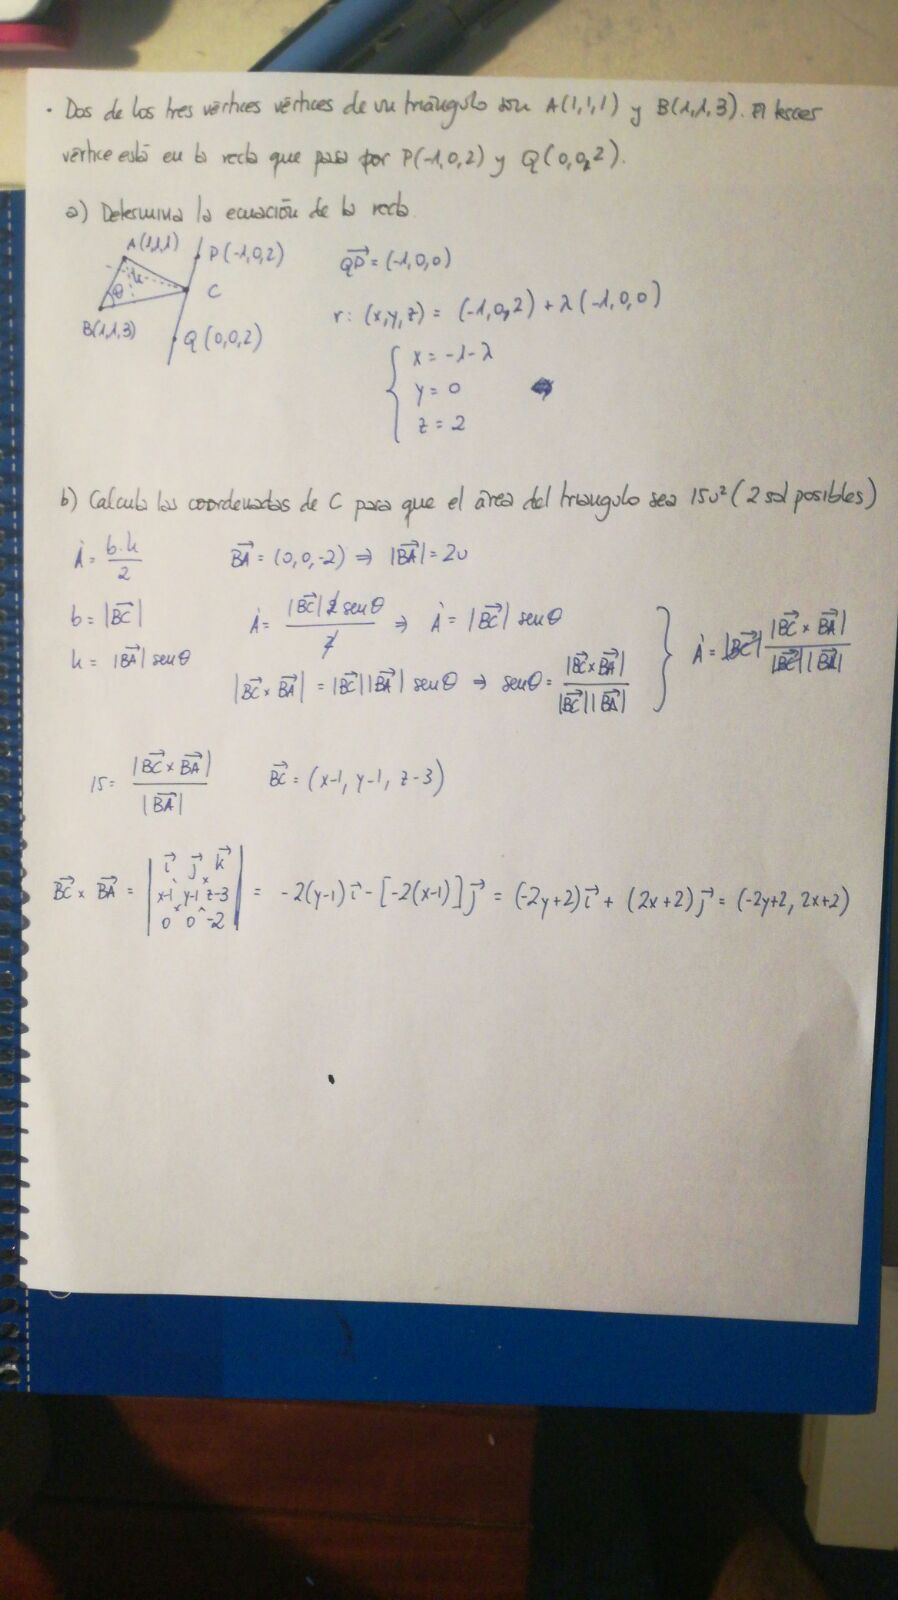 · Dos de los tres vértices vértices de un triángulo son A(1,1,1) y B(1,1,3). El tercer
vértice está en la recta que pasa por P(-1,0,2) y Q(0,0,2).
a) Determina la ecuación de la recta.
A(1,1,1)
P(-1,0,2)
h
θ
C
B(1,1,3)
Q(0,0,2)
QP⃗ = (-1,0,0)
r: (x,y,z) = (-1,0,2) + λ(-1,0,0)
{ x = -1-λ
y = 0
z = 2
b) Calcula las coordenadas de C para que el área del triangulo sea 15u² (2 sol posibles)
A = b·h/2
BA⃗ = (0,0,-2) ⇒ |BA⃗| = 2u
b = |BC⃗|
A = |BC⃗| 2 senθ / 2 ⇒ A = |BC⃗| senθ
h = |BA⃗| senθ
|BC⃗ × BA⃗| = |BC⃗||BA⃗| senθ ⇒ senθ = |BC⃗×BA⃗| / |BC⃗||BA⃗|
} A = |BC⃗| |BC⃗ × BA⃗| / |BC⃗||BA⃗|
15 = |BC⃗ × BA⃗| / |BA⃗|
BC⃗ = (x-1, y-1, z-3)
BC⃗ × BA⃗ = | i⃗ j⃗ k⃗
x-1 y-1 z-3
0 0 -2 | = -2(y-1)i⃗ - [-2(x-1)]j⃗ = (-2y+2)i⃗ + (2x+2)j⃗ = (-2y+2, 2x+2)